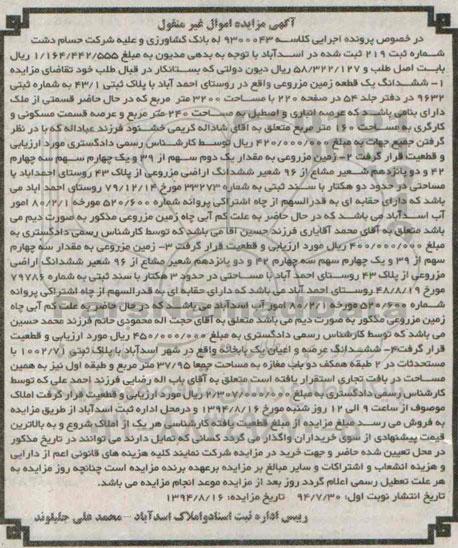 آگهی مزایده اموال غیر منقول
در خصوص پرونده اجرایی کلاسه ۹۳۰۰۰۴۳ له بانک کشاورزی و علیه شرکت حسام دشت
شماره ثبت ۲۱۹ ثبت شده در اسدآباد با توجه به بدهی مدیون به مبلغ ۱/۱۶۴/۴۴۲/۵۵۵ ریال
بابت اصل طلب و ۵۸/۳۲۲/۱۲۷ ریال دیون دولتی که بستانکار در قبال طلب خود تقاضای مزایده
۱- ششدانگ یک قطعه زمین مزروعی واقع در روستای احمد آباد با پلاک ثبتی ۴۳/۱ به شماره ثبتی
۹۶۳۲ در دفتر جلد ۵۴ در صفحه ۲۲۰ با مساحت ۳۲۰۰ متر مربع که در حال حاضر قسمتی از ملک
دارای بنامی باشند که عرصه انباری و اصطبل به مساحت ۲۴۰ متر مربع و عرصه قسمت مسکونی و
کارگری به مساحت ۱۶۰ متر مربع متعلق به آقای شاداله کریمی خشنود فرزند عباداله که با در نظر
گرفتن جمیع جهات به مبلغ ۴۲۰/۰۰۰/۰۰۰ ریال توسط کارشناس رسمی دادگستری مورد ارزیابی
و قطعیت قرار گرفت ۲- زمین مزروعی به مقدار یک دوم سهم از ۳۹ و یک چهارم سهم سه چهارم
۴۲ و دو پانزدهم شعیر مشاع از ۹۶ شعیر ششدانگ اراضی مزروعی از پلاک ۴۳ روستای احمداباد با
مساحتی در حدود دو هکتار با سند ثبتی به شماره ۳۳۲۷۳ مورخ ۷۹/۱۲/۱۴ روستای احمد اباد می
باشد که دارای حقابه ای به قدرالسهم از چاه اشتراکی پروانه شماره ۵۲۰/۶۰۰ مورخه ۸۰/۲/۱ امور
آب اسدآباد می باشد که در حال حاضر به علت کم آبی چاه زمین مزروعی مذکور به صورت دیم می
باشد متعلق به آقای محمد آقایاری فرزند حسین آقا می باشد که توسط کارشناس رسمی دادگستری به
مبلغ ۴۰۰/۰۰۰/۰۰۰ ریال مورد ارزیابی و قطعیت قرار گرفت ۳- زمین مزروعی به مقدار سه چهارم
سهم از ۳۹ و یک چهارم سهم سه چهارم ۴۲ و دو پانزدهم شعیر مشاع از ۹۶ شعیر ششدانگ اراضی
مزروعی از پلاک ۴۳ روستای احمد آباد با مساحتی در حدود ۳ هکتار با سند ثبتی به شماره ۷۹۷۸۶
مورخ ۴۸/۸/۱۹ روستای احمد آباد می باشد که دارای حقابه ای به قدرالسهم از چاه اشتراکی پروانه
شماره ۵۲۰/۶۰۰ مورخ ۸۰/۲/۱ امور آب اسدآباد می باشد که در حال حاضر به علت کم آبی چاه
زمین مزروعی مذکور به صورت دیم می باشد متعلق به آقای حجت اله محمودی حاتم فرزند محمد حسین
می باشد که توسط کارشناس رسمی دادگستری به مبلغ ۴۵۰/۰۰۰/۰۰۰ ریال مورد ارزیابی و قطعیت
قرار گرفت۴- ششدانگ عرصه و اعیان یک بابخانه واقع در شهر اسدآباد با پلاک ثبتی ۱۰۰۲/۷۱ با
مستحدثات در ۲ طبقه همکف دو باب مغازه به مساحت جمعا ۳۷/۹۵ متر مربع و طبقه اول نیز به همین
مساحت در بافت تجاری استقرار یافته است متعلق به آقای باب اله رضایی فرزند احمد علی که توسط
کارشناس رسمی دادگستری به مبلغ ۲/۳۰۷/۰۰۰/۰۰۰ ریال مورد ارزیابی و قطعیت قرار گرفت املاک
موصوف از ساعت ۹ الی ۱۲ روز شنبه مورخ ۱۳۹۴/۸/۱۶ و درمحل اداره ثبت اسدآباد از طریق مزایده
به فروش می رسد مبلغ مزایده از مبلغ قطعیت یافته کارشناسی هر یک از املاک شروع و به بالاترین
قیمت پیشنهادی از سوی خریداران واگذار می گردد کسانی که تمایل دارند می توانند در تاریخ مذکور
در محل تعیین شده حاضر و جهت خرید در مزایده شرکت نمایند کلیه هزینه های قانونی اعم از دارایی
و هزینه انشعاب و اشتراکات و سایر مبالغ بر مزایده برعهده برنده مزایده است چنانچه روز مزایده به
هر علت تعطیل رسمی اعلام گردد روز بعد از مزایده موعد انجام مزایده می باشد.
تاریخ انتشار نوبت اول: ۹۴/۷/۳۰ تاریخ مزایده: ۱۳۹۴/۸/۱۶
رییس اداره ثبت اسنادواملاک اسدآباد – محمد علی جلیلوند